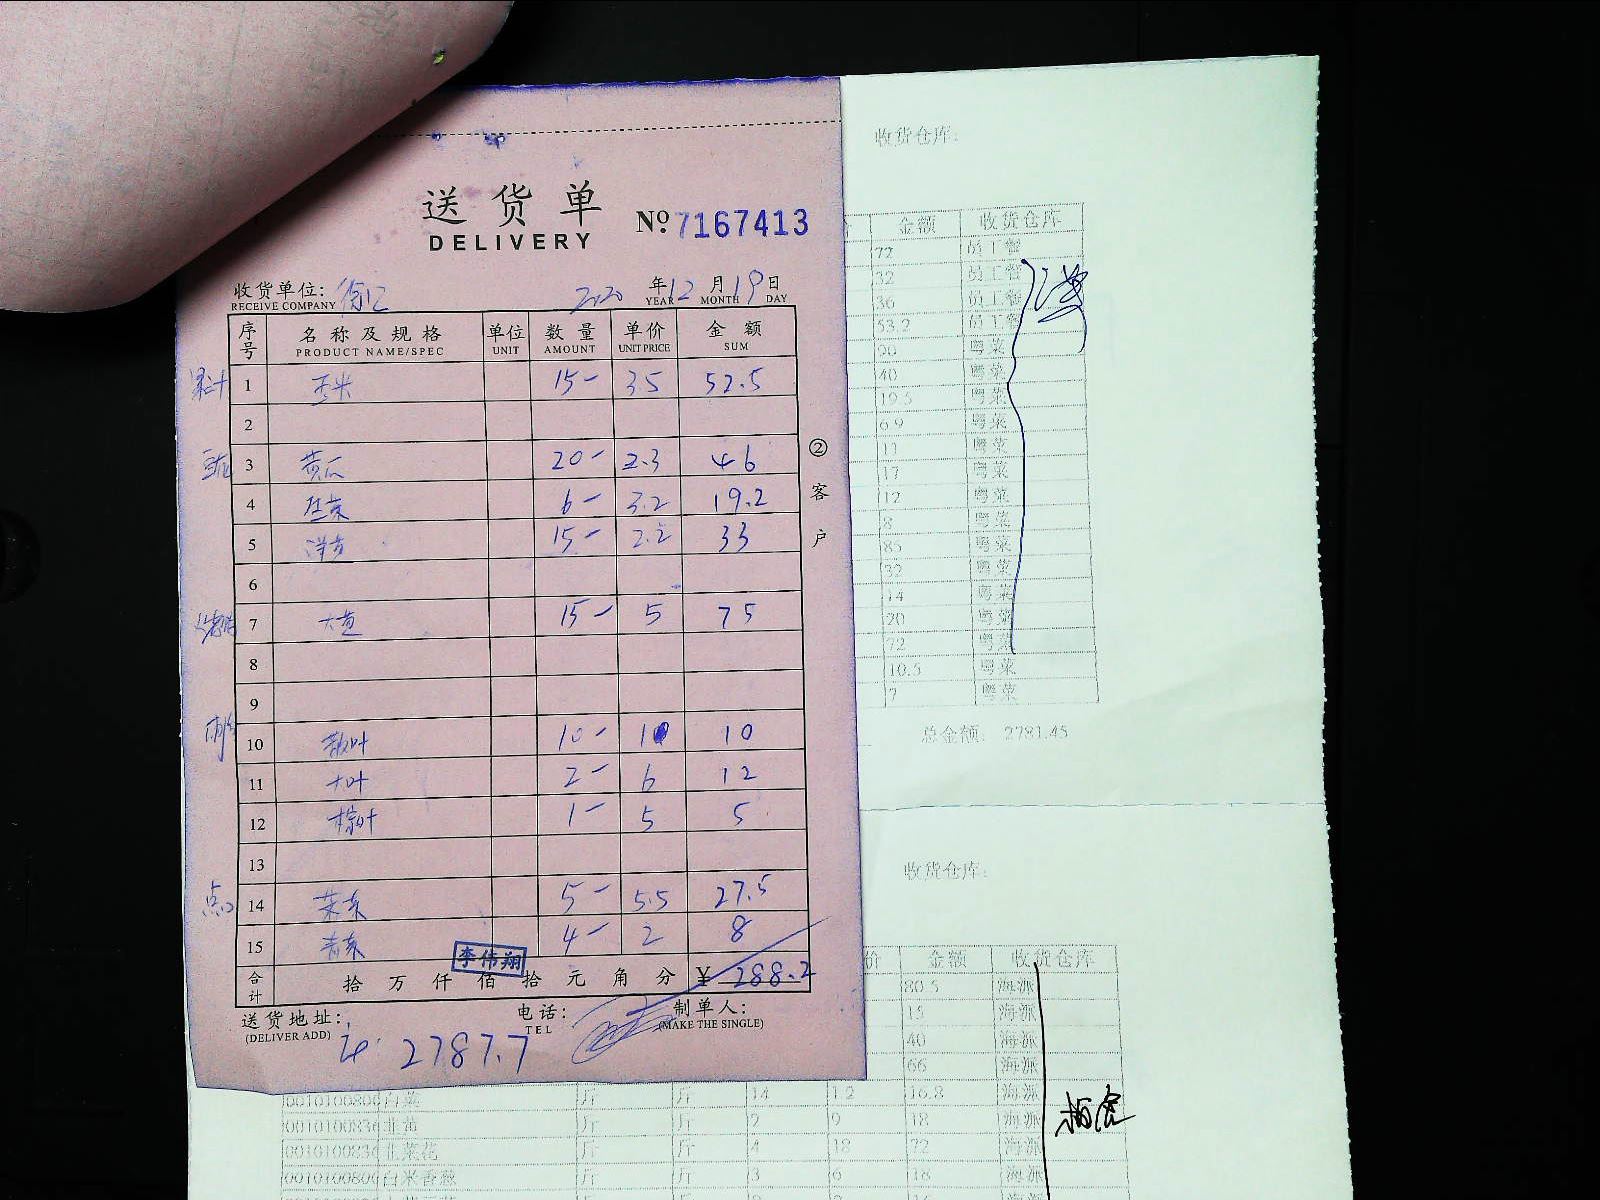 送货单
DELIVERY
№ 7167413
收货单位: 徐汇 2020 年 12 月 19 日
RECEIVE COMPANY YEAR MONTH DAY
序号 名称及规格 单位 数量 单价 金额
PRODUCT NAME/SPEC UNIT AMOUNT UNIT PRICE SUM
1 玉米 15- 35 52.5
2
3 黄瓜 20- 2.3 46
4 生菜 6- 3.2 19.2
5 15- 2.2 33
6
7 15- 5 75
8
9
10 10- 10
11 大叶 2- 6 12
12 粽叶 1- 5 5
13
14 5- 5.5 27.5
15 4- 2 8
合计 拾 万 仟 佰 拾 元 角 分 ¥ 288.2
李伟翔
②客户
送货地址: 电话: 制单人:
(DELIVER ADD) TEL (MAKE THE SINGLE)
2787.7
收货仓库:
金额 收货仓库
72 员工餐
32 员工餐
36 员工餐
53.2 员工餐
20 粤菜
40 粤菜
19.5 粤菜
6.9 粤菜
11 粤菜
17 粤菜
12 粤菜
8 粤菜
85 粤菜
32 粤菜
14 粤菜
20 粤菜
72 粤菜
10.5 粤菜
7 粤菜
总金额: 2781.45
收货仓库:
价 金额 收货仓库
80.5 海派
15 海派
40 海派
66 海派
白菜 斤 斤 14 1.2 16.8 海派
韭苗 斤 斤 2 9 18 海派
韭菜花 斤 斤 4 18 72 海派
白米香葱 斤 斤 3 6 18 海派